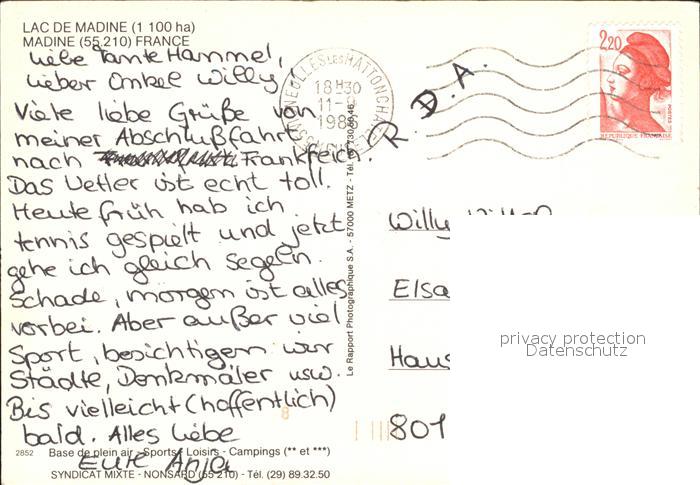 LAC DE MADINE (1 100 ha)
MADINE (55.210) FRANCE
Liebe Tante Hammel,
Lieber Onkel Willy!
Viele liebe Grüße von
meiner Abschlußfahrt
nach Frankreich.
Das Wetter ist echt toll.
Heute früh hab ich
tennis gespielt und jetzt
gehe ich gleich segeln.
Schade, morgen ist alles
vorbei. Aber außer viel
Sport, besichtigen wir
Städte, Denkmäler usw.
Bis vielleicht (hoffentlich)
bald. Alles Liebe
Eure Anja
2852 Base de plein air - Sports - Loisirs - Campings (** et ***)
SYNDICAT MIXTE - NONSARD (55 210) - Tél. (29) 89.32.50
Le Rapport Photographique S.A. - 57000 METZ - Tél.
18H30
11-
R. D. A.
2,20
POSTES
REPUBLIQUE FRANÇAISE
Willy
Elsa
Haus
801
privacy protection
Datenschutz